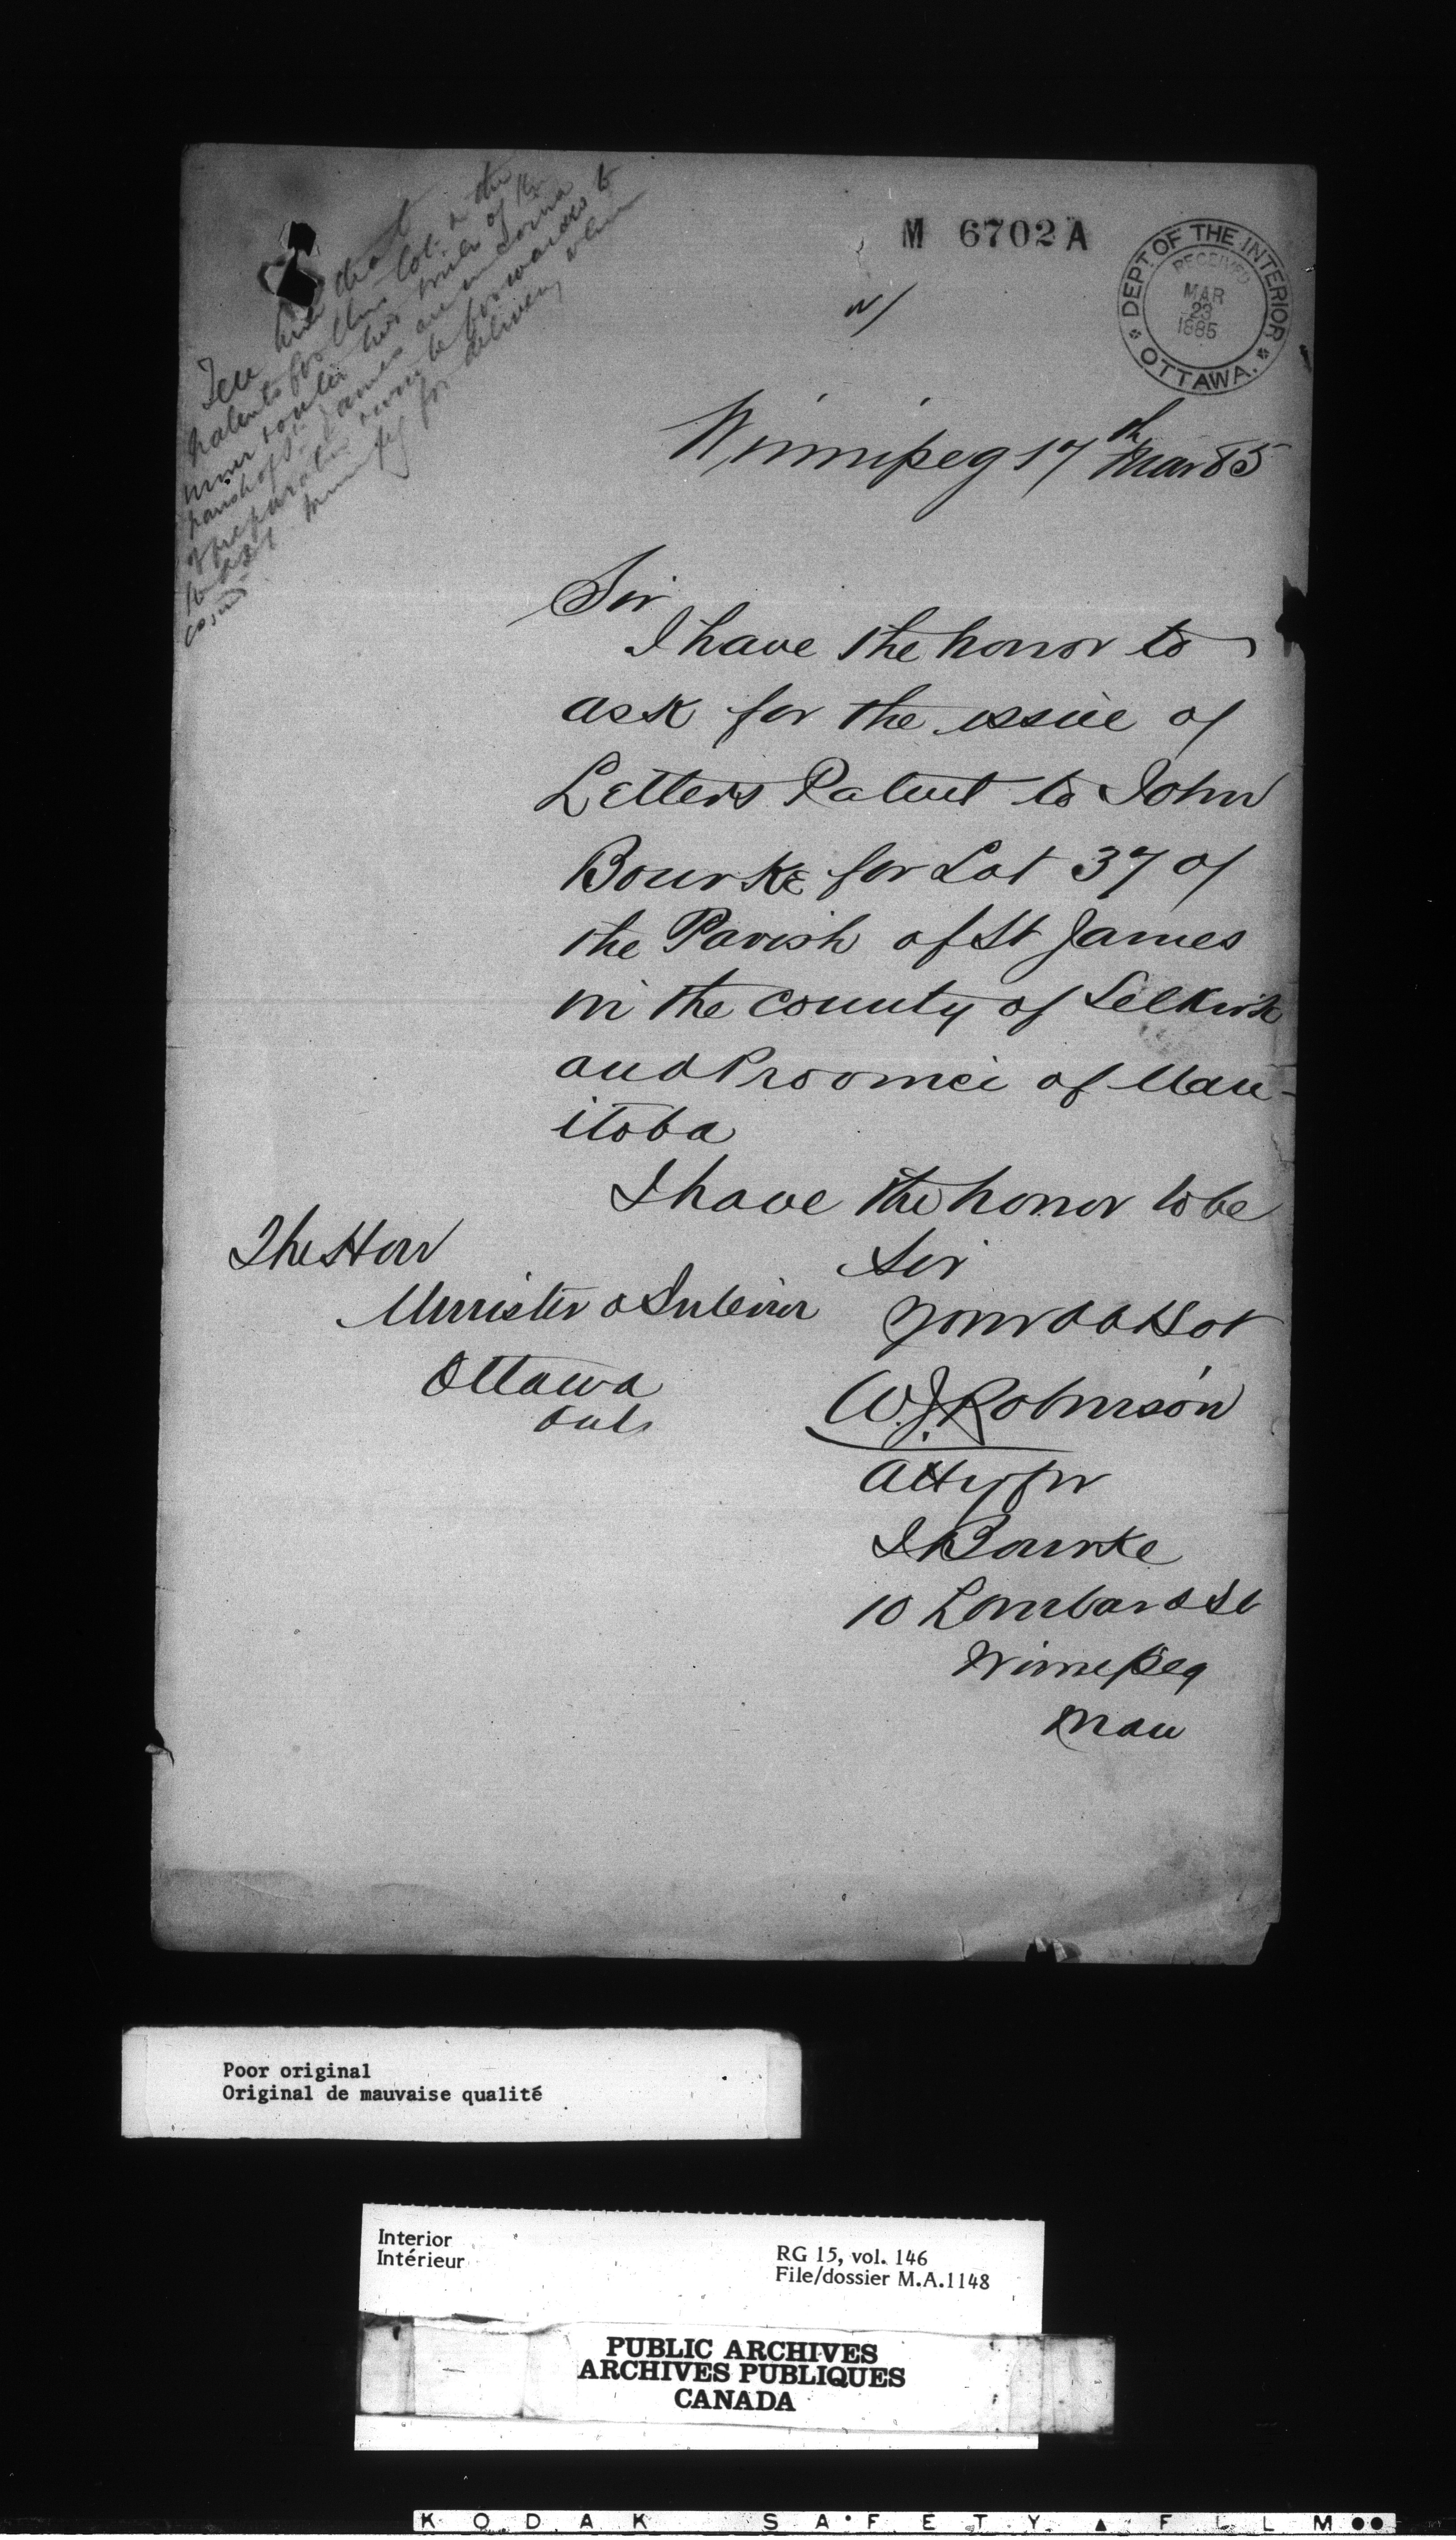 M 6702 A
DEPT. OF THE INTERIOR
RECEIVED
MAR
23
1885
OTTAWA.
Tell him that
patents for this lot & the
outer two miles of the
parish of St. James are in course
of preparation & will be forwarded to
Winnipeg for delivery when
Winnipeg 17th Mar 85
Sir
I have the honor to
ask for the issue of
Letters Patent to John
Bourke for Lot 37 of
the Parish of St James
in the county of Selkirk
and Province of Man-
itoba
I have the honor to be
Sir
Your Ob Sot
The Hon
Minister o Interior
Ottawa
Ont
W. J. Robinson
Atty for
J Bourke
10 Lombard St
Winnipeg
Man
Poor original
Original de mauvaise qualité
Interior
Intérieur
RG 15, vol. 146
File/dossier M.A.1148
PUBLIC ARCHIVES
ARCHIVES PUBLIQUES
CANADA
KODAK SAFETY FILM